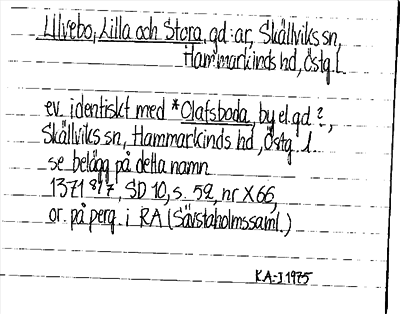 Ulvebo, Lilla och Stora, gd:ar, Skällviks sn,
Hammarkinds hd, Östg. l.
ev. identiskt med *Olafsboda, by el. gd ?,
Skällviks sn, Hammarkinds hd, Östg. l.
se belägg på detta namn
1371 8/7, SD 10, s. 52, nr X66,
or. på perg. i RA (Sävstaholmssaml.)
K.A-J 1975